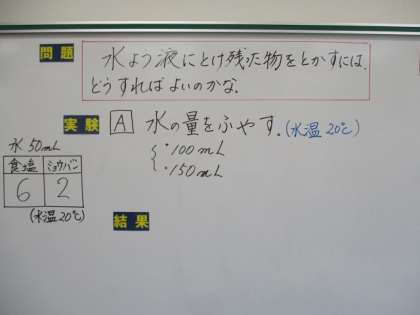 問題 水よう液にとけ残った物をとかすには、
どうすればよいのかな。
実験 A 水の量をふやす。(水温20℃)
・100mL
・150mL
水50mL
食塩 ミョウバン
6 2
(水温20℃)
結果